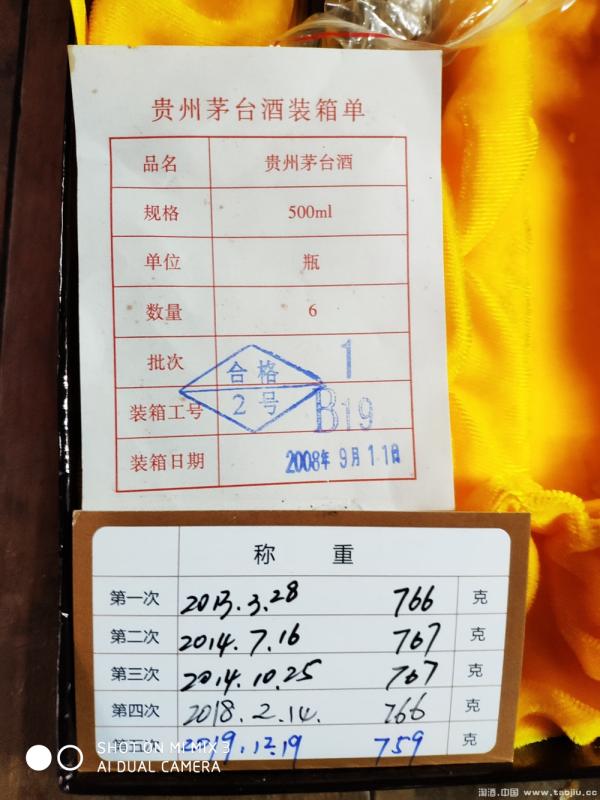 贵州茅台酒装箱单
品名 贵州茅台酒
规格 500ml
单位 瓶
数量 6
批次 1
合格
2号
装箱工号 B19
装箱日期 2008年9月11日
称 重
第一次 2013.3.28 766 克
第二次 2014.7.16 767 克
第三次 2014.10.25 767 克
第四次 2018.2.14. 766 克
第五次 2019.12.19 759 克
SHOT ON MI MIX 3
AI DUAL CAMERA
淘酒.中国 www.taojiu.cc